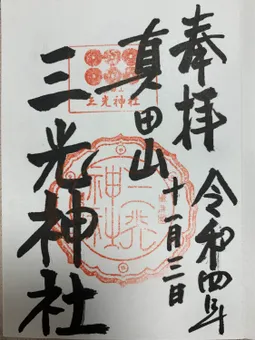 奉拝
令和四年
十一月三日
真田山
三光神社
三光神社
三光神社